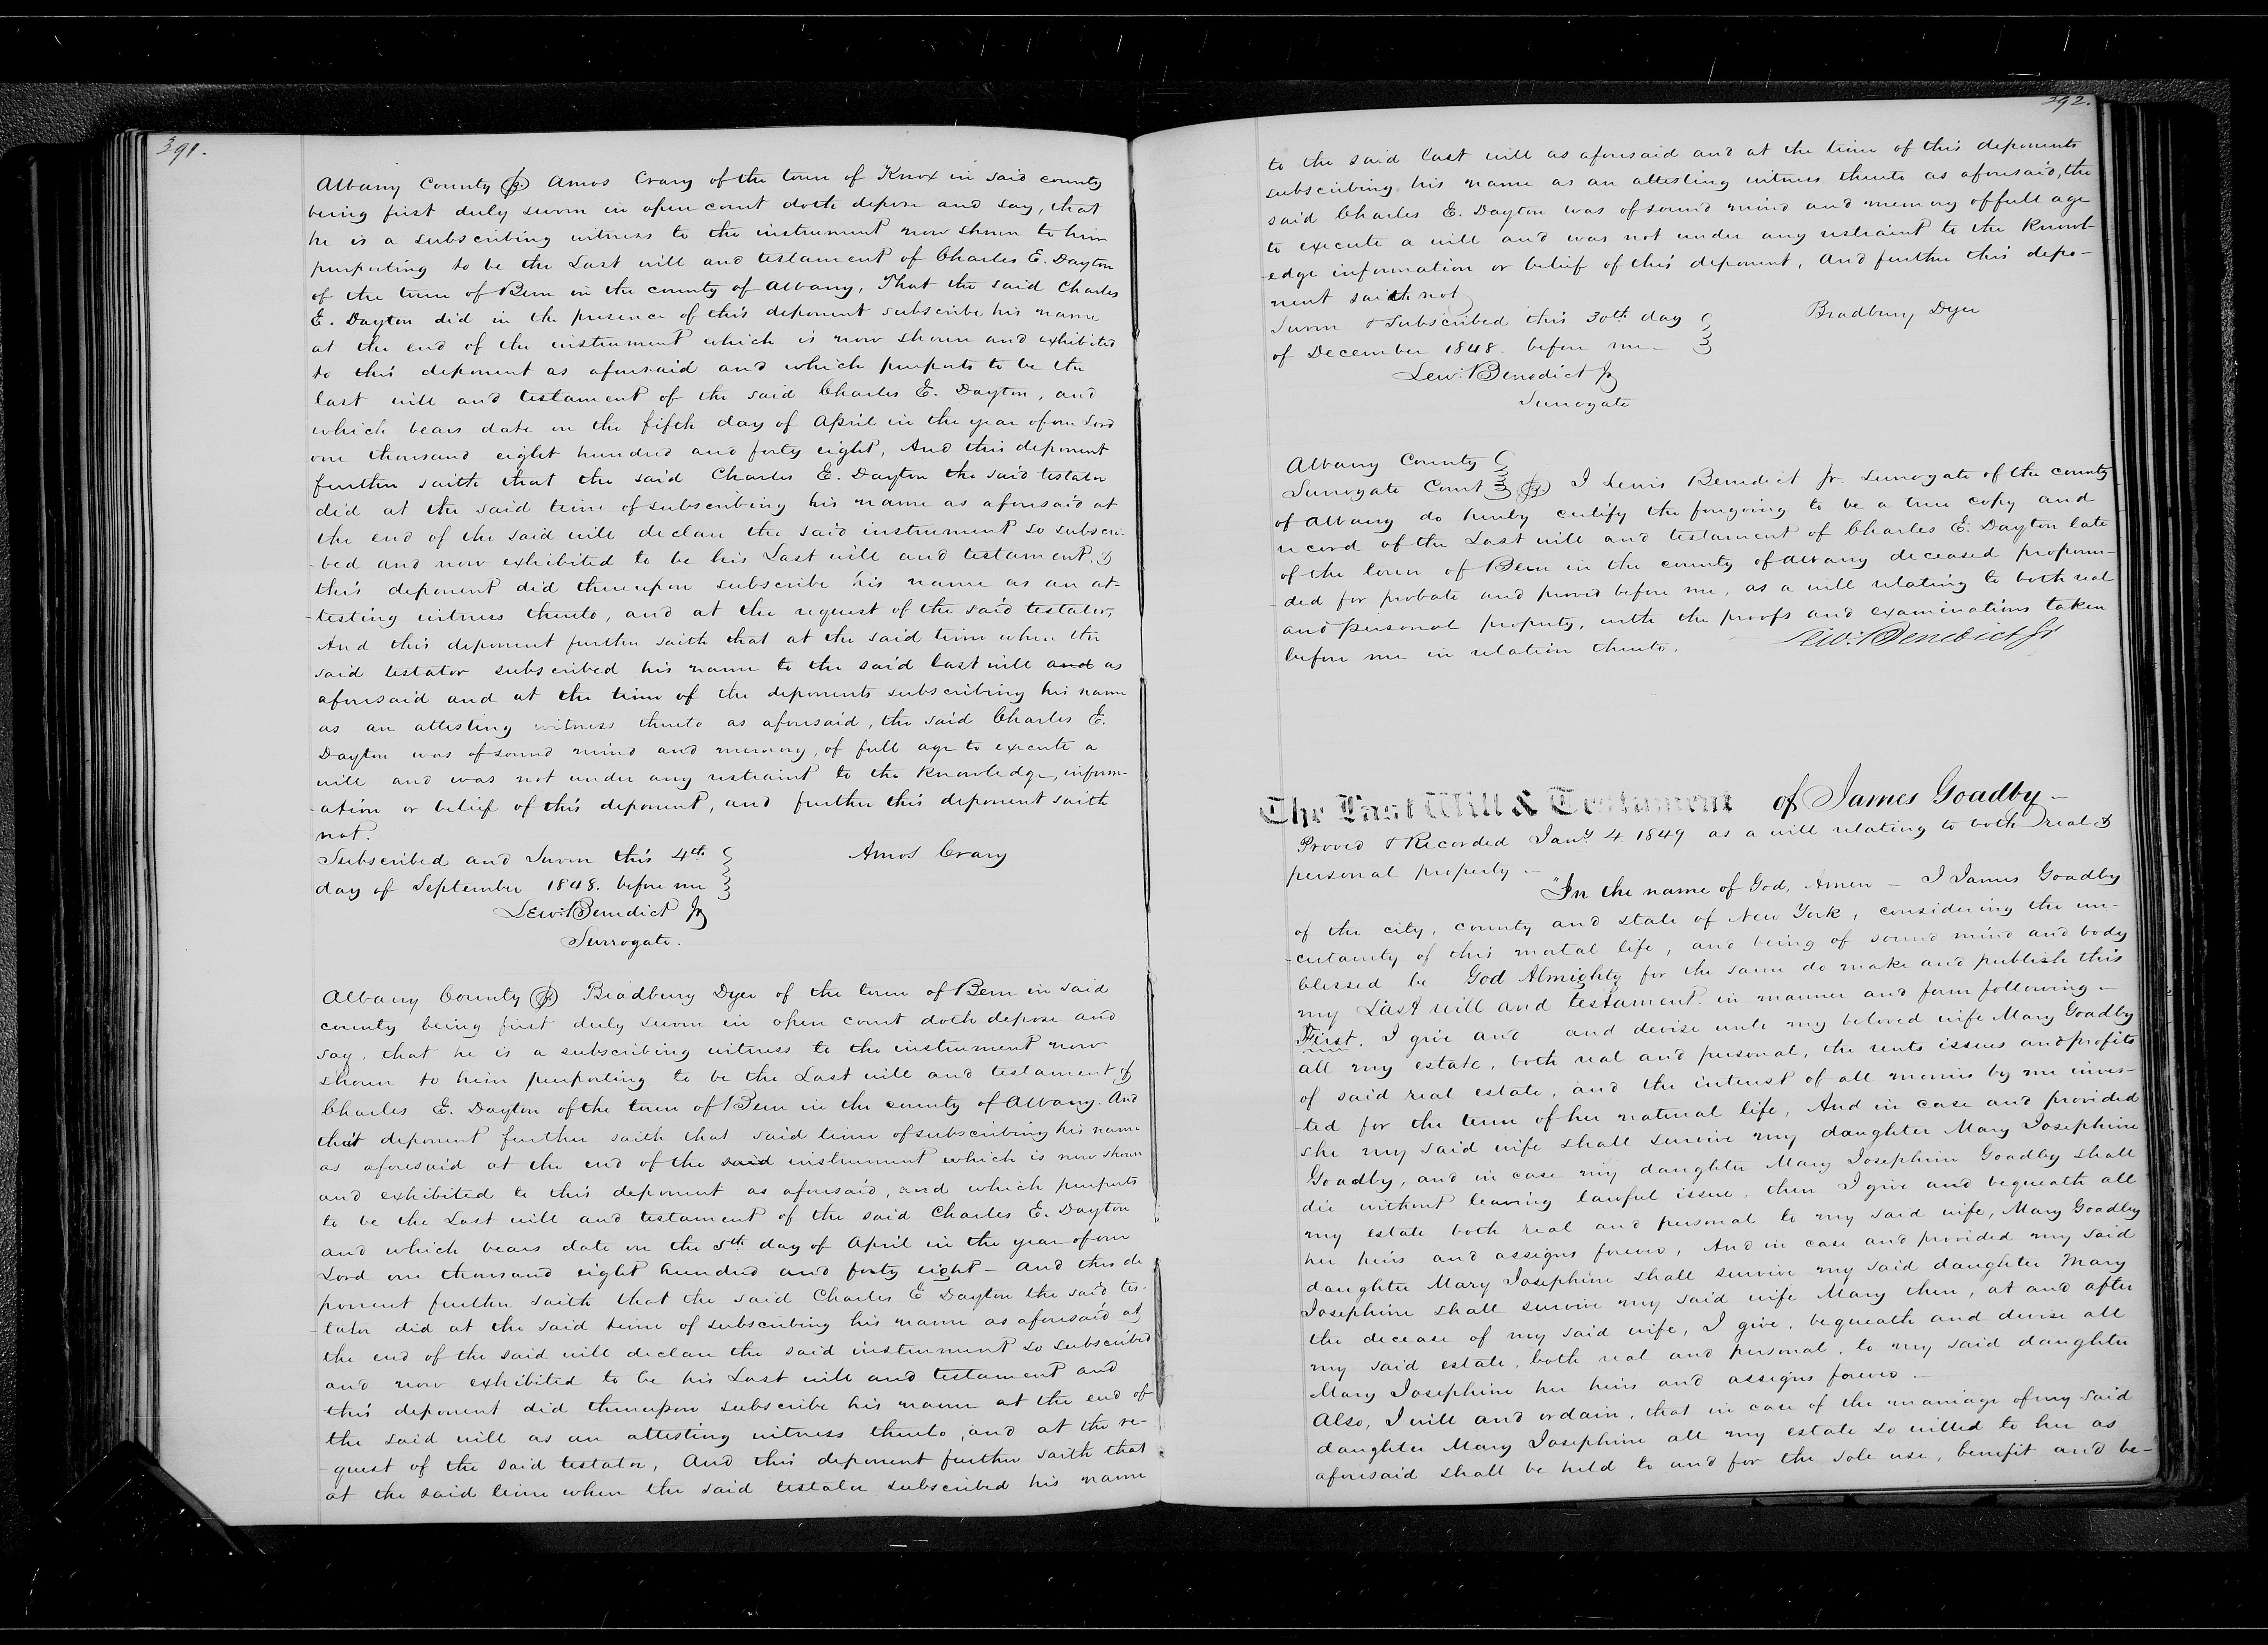 391.
Albany County ss. Amos Crary of the town of Knox in said county
being first duly sworn in open court doth depose and say, that
he is a subscribing witness to the instrument now shown to him
purporting to be the Last will and testament of Charles E. Dayton
of the town of Bern in the county of Albany, That the said Charles
E. Dayton did in the presence of this deponent subscribe his name
at the end of the instrument which is now shown and exhibited
to this deponent as aforesaid and which purports to be the
last will and testament of the said Charles E. Dayton, and
which bears date on the fifth day of April in the year of our Lord
one thousand eight hundred and forty eight, And this deponent
further saith that the said Charles E. Dayton the said testator
did at the said time of subscribing his name as aforesaid at
the end of the said will declare the said instrument so subscri-
-bed and now exhibited to be his Last will and testament. &
this deponent did thereupon subscribe his name as an at-
-testing witness thereto, and at the request of the said testator,
And this deponent further saith that at the said time when the
said testator subscribed his name to the said last will and as
aforesaid and at the time of the deponents subscribing his name
as an attesting witness thereto as aforesaid, the said Charles E.
Dayton was of sound mind and memory, of full age to execute a
will and was not under any restraint to the knowledge, inform-
-ation or belief of this deponent, and further this deponent saith
not.
Subscribed and Sworn this 4th
day of September 1848. before me
Amos Crary
Lew: Benedict Jr
Surrogate.
Albany County ss. Bradbury Dyer of the town of Bern in said
county being first duly sworn in open court doth depose and
say, that he is a subscribing witness to the instrument now
shown to him purporting to be the Last will and testament of
Charles E. Dayton of the town of Bern in the county of Albany. And
that deponent further saith that said time of subscribing his name
as aforesaid at the end of the said instrument which is now shown
and exhibited to this deponent as aforesaid, and which purports
to be the Last will and testament of the said Charles E. Dayton
and which bears date on the 5th day of April in the year of our
Lord one thousand eight hundred and forty eight - And this de
ponent further saith that the said Charles E Dayton the said tes-
-tator did at the said time of subscribing his name as aforesaid at
the end of the said will declare the said instrument so subscribed
and now exhibited to be his Last will and testament and
this deponent did thereupon subscribe his name at the end of
the said will as an attesting witness thereto, and at the re-
-quest of the said testator, And this deponent further saith that
at the said time when the said testator subscribed his name
392.
to the said last will as aforesaid and at the time of this deponents
subscribing his name as an attesting witness thereto as aforesaid, the
said Charles E. Dayton was of sound mind and memory of full age
to execute a will and was not under any restraint to the knowl-
-edge information or belief of this deponent, And further this depo-
nent saith not
Sworn & Subscribed this 30th day
of December 1848. before me
Bradbury Dyer
Lew: Benedict Jr
Surrogate
Albany County
Surrogate Court ss. I Lewis Benedict Jr. surrogate of the county
of Albany do hereby certify the foregoing to be a true copy and
record of the Last will and testament of Charles E. Dayton late
of the town of Bern in the county of Albany deceased propoun-
-ded for probate and proved before me, as a will relating to both real
and personal property, with the proofs and examinations taken
before me in relation thereto.
Lew: Benedict Jr
The Last Will & Testament of James Goadby -
Proved & Recorded Jany 4. 1849 as a will relating to both real &
personal property -
"In the name of God, Amen - I James Goadby
of the city, county and state of New York, considering the un-
-certainty of this mortal life, and being of sound mind and body
blessed be God Almighty for the same do make and publish this
my Last will and testament in manner and form following -
First. I give and and devise unto my beloved wife Mary Goadby
all my estate, both real and personal, the rents issues and profits
of said real estate, and the interest of all monies by me inves-
-ted for the term of her natural life, And in case and provided
she my said wife shall survive my daughter Mary Josephine
Goadby, and in case my daughter Mary Josephine Goadby shall
die without leaving lawful issue, then I give and bequeath all
my estate both real and personal to my said wife, Mary Goadby
her heirs and assigns forever, And in case and provided my said
daughter Mary Josephine shall survive my said daughter Mary
Josephine shall survive my said wife Mary then, at and after
the decease of my said wife, I give, bequeath and devise all
my said estate, both real and personal, to my said daughter
Mary Josephine her heirs and assigns forever -
Also, I will and ordain, that in case of the marriage of my said
daughter Mary Josephine all my estate so willed to her as
aforesaid shall be held to and for the sole use, benefit and be-